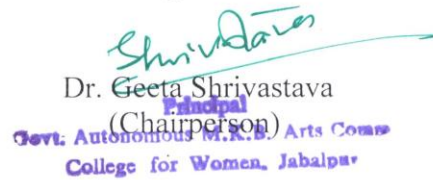 Shrivastava
Dr. Geeta Shrivastava
Principal
(Chairperson)
Govt. Autonomous M.K.B. Arts Comm
College for Women, Jabalpur